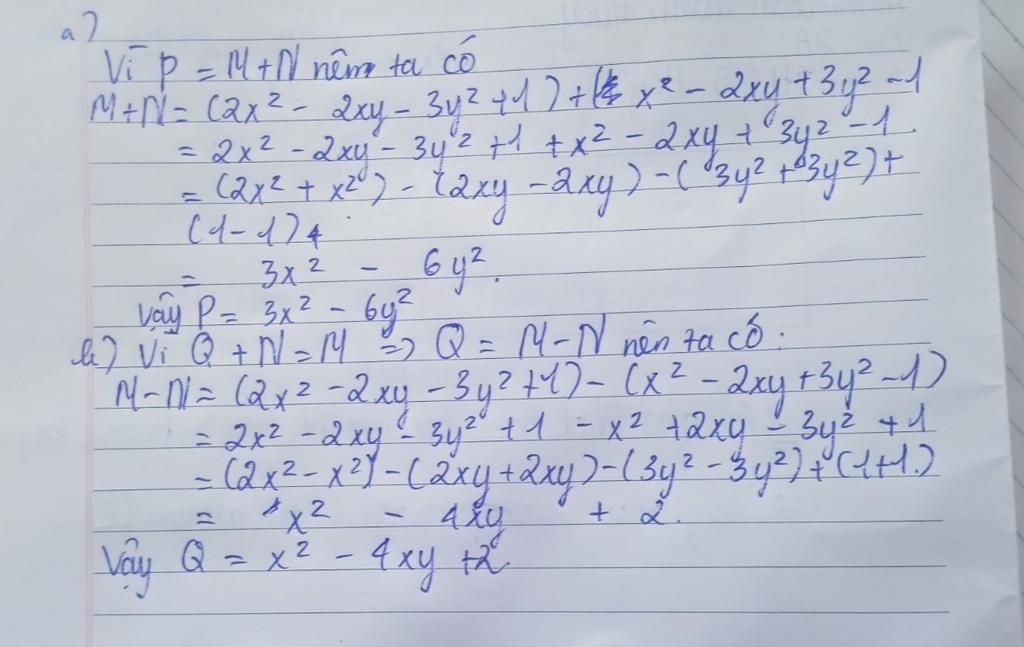 a)
Vì P = M+N nên ta có
M+N = (2x² - 2xy - 3y² + 1) + ( x² - 2xy + 3y² - 1
= 2x² - 2xy - 3y² + 1 + x² - 2xy + 3y² - 1.
= (2x² + x²) - (2xy - 2xy) - (3y² + 3y²) +
(1 - 1)
= 3x² - 6y².
Vậy P = 3x² - 6y²
b) Vì Q + N = M => Q = M - N nên ta có:
M - N = (2x² - 2xy - 3y² + 1) - (x² - 2xy + 3y² - 1)
= 2x² - 2xy - 3y² + 1 - x² + 2xy - 3y² + 1
= (2x² - x²) - (2xy + 2xy) - (3y² - 3y²) + (1+1.)
= x² - 4xy + 2.
Vậy Q = x² - 4xy + 2.